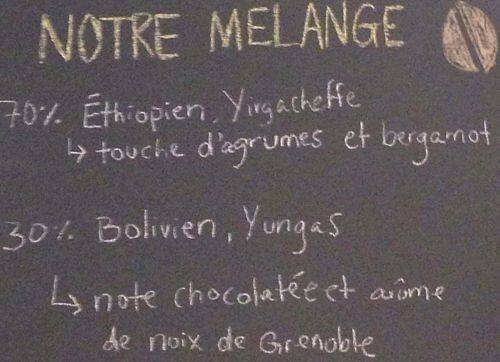 NOTRE MELANGE
70% Éthiopien, Yirgacheffe
↳ touche d'agrumes et bergamot
30% Bolivien, Yungas
↳ note chocolatée et arôme
de noix de Grenoble